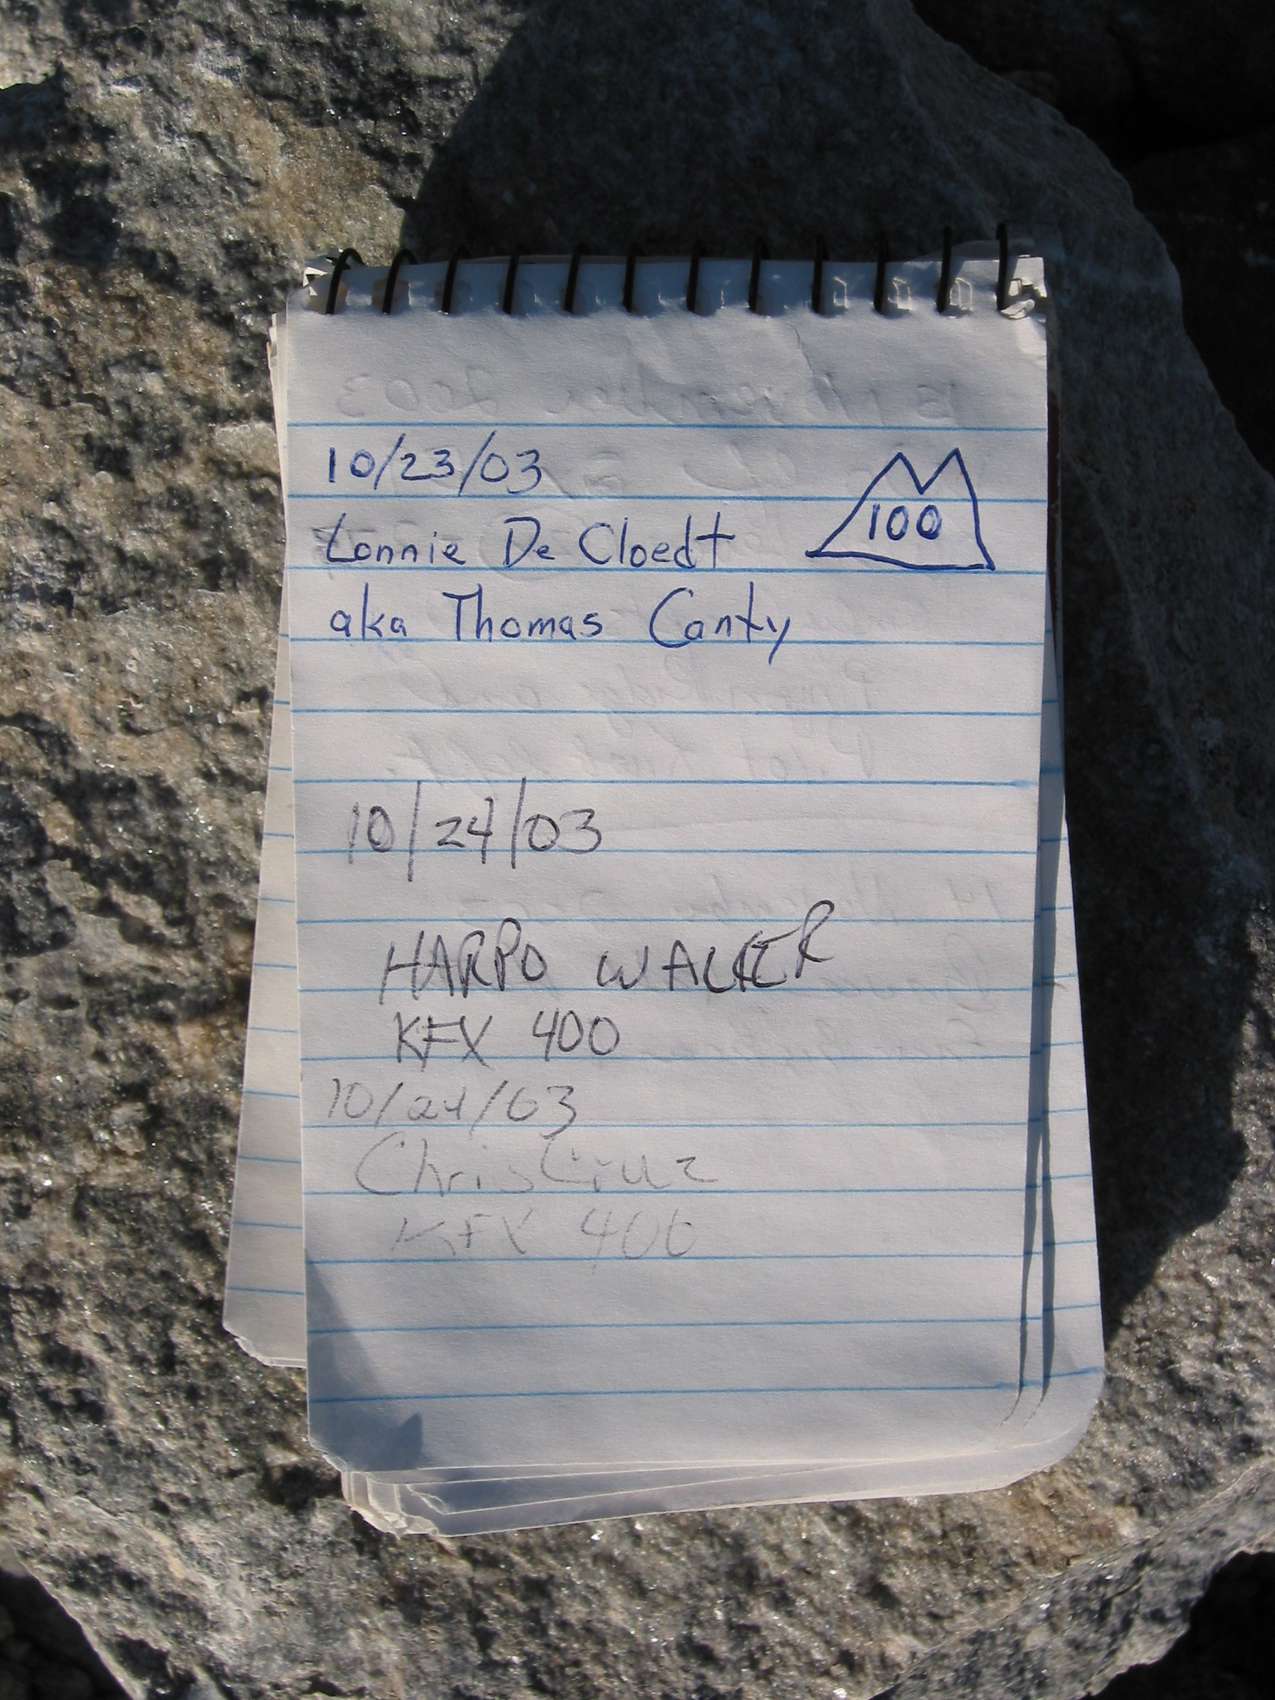 10/23/03
Lonnie De Cloedt
100
aka Thomas Canty
10/24/03
HARPO WALKER
KFX 400
10/24/03
Chris Cruz
KFX 400